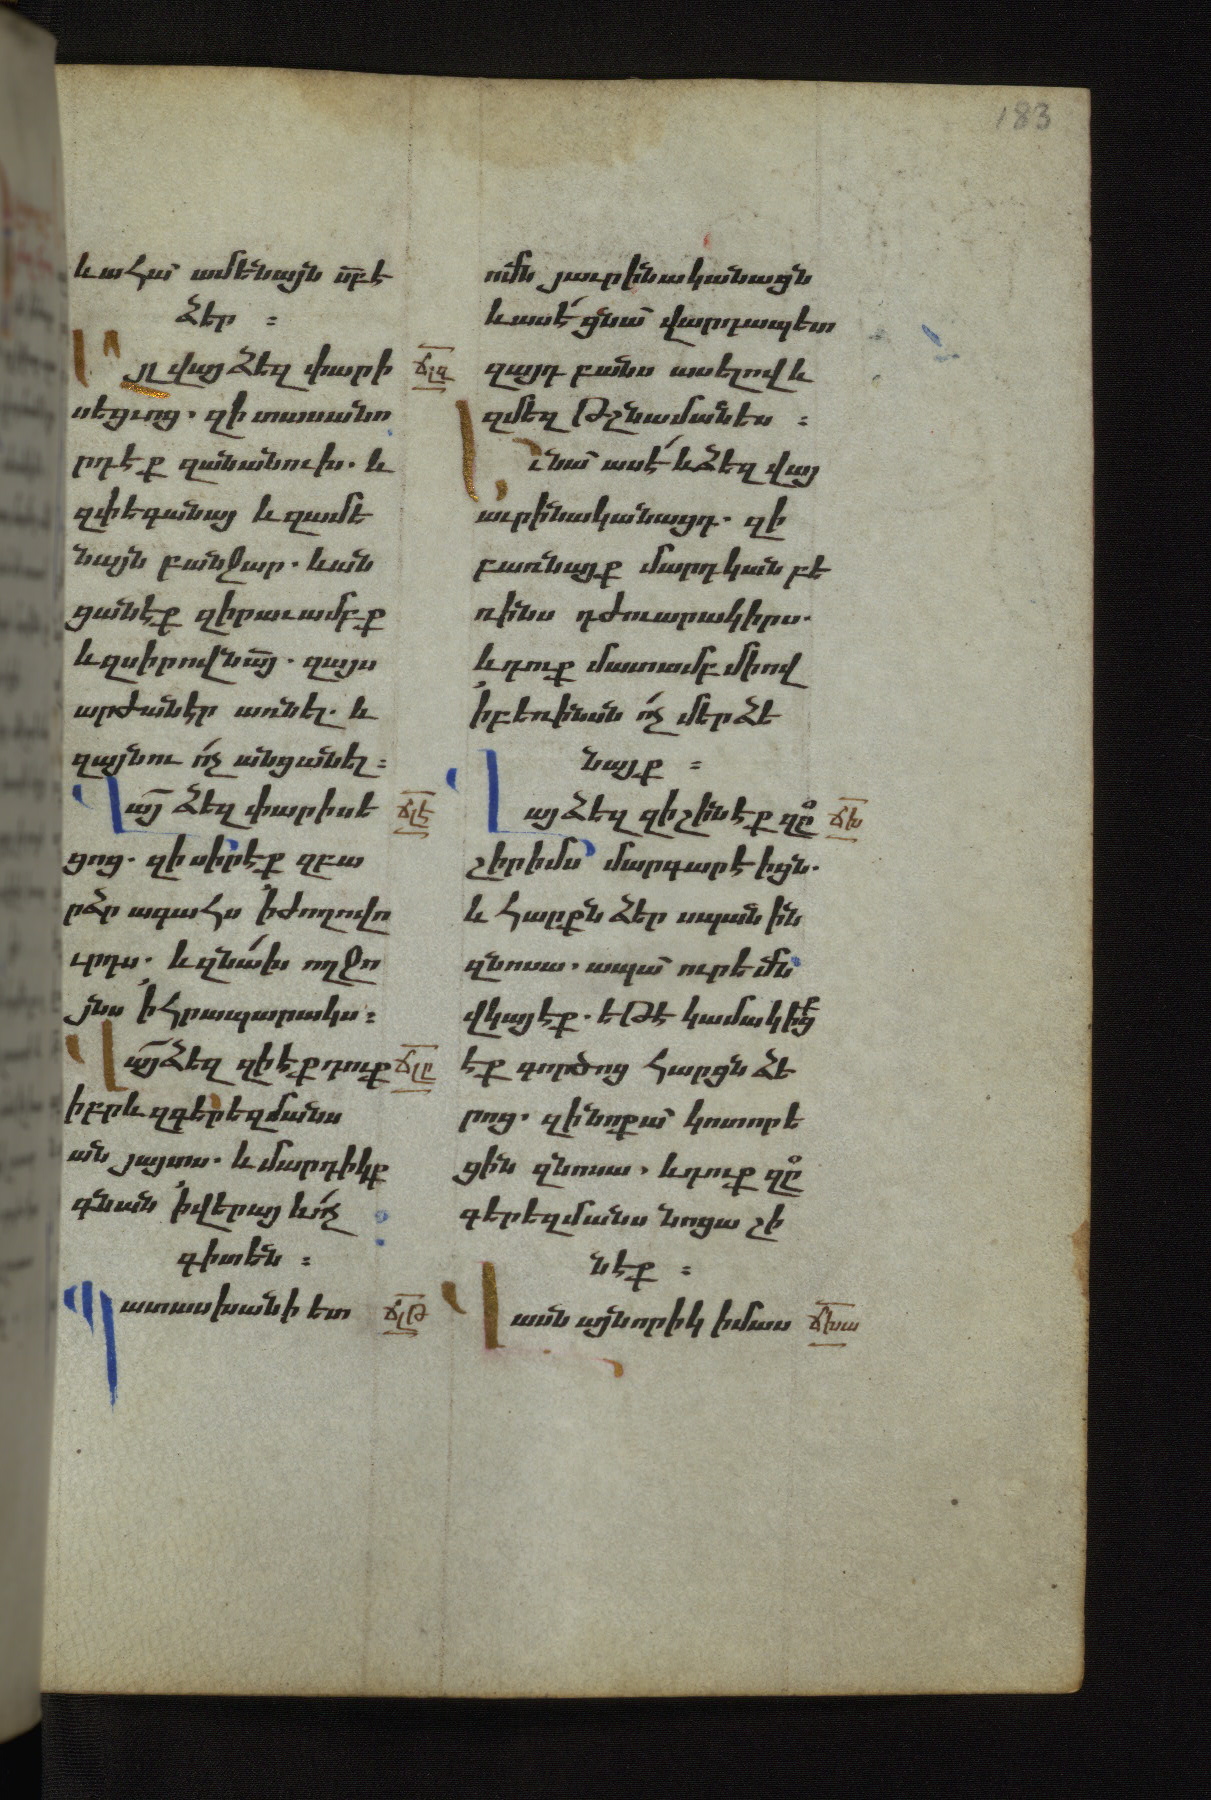 183
և ահա՛ ամենայն սբէ
ձեր ։
Այլ վայ ձեզ փարի
սեցւոց. զի տասանո
րդէք զանանուխ. և
զփեգանայ և զամե
նայն բանջար. և ան
ցանէք զիրաւամբք
և զսիրովն այ. զայս
արժաներ առնել. և
զայնու ո՛չ անցանել։
Վայ ձեզ փարիսե
ցոց. զի սիրէք զբա
րձր ագահս ՚ի ժողովը
ւրդս. և զնա՛խ ողջո
յնս ՚ի հրապարակս։
Վայ ձեզ զի էք դուք
իբրև զգերեզմանս
ան յայտս. և մարդիկք
գնան ՚ի վերայ և ո՛չ
գիտեն ։
Պատասխանի ետ
ճլզ
ճլէ
ճլը
ճլթ
ոմն յաւրինականացն
և ասէ՛ ցնա՛ վարդապետ
զայդ բանս ասելով և
զմեզ թշնամանես ։
Ւ նա՛ ասէ՛ և ձեզ վայ
աւրինականացդ. զի
բառնայք մարդկան բե
ռինս դժուարակիրս.
և դուք մատամբ միով
՚ի բեռինան ո՛չ մերձե
նայք ։
Վայ ձեզ զի շինէք զը
շիրիմս մարգարէիցն.
և հարքն ձեր սպանին
զնոսա. ապա՛ ուրեմն
վկայէք. եթէ կամակից
էք գործոց հարցն ձե
րոց. զի նոքա՛ կոտորե
ցին զնոսա. և դուք զը
գերեզմանս նոցա շի
նէք ։
Վասն այնորիկ իմաս
ճխ
ճխա